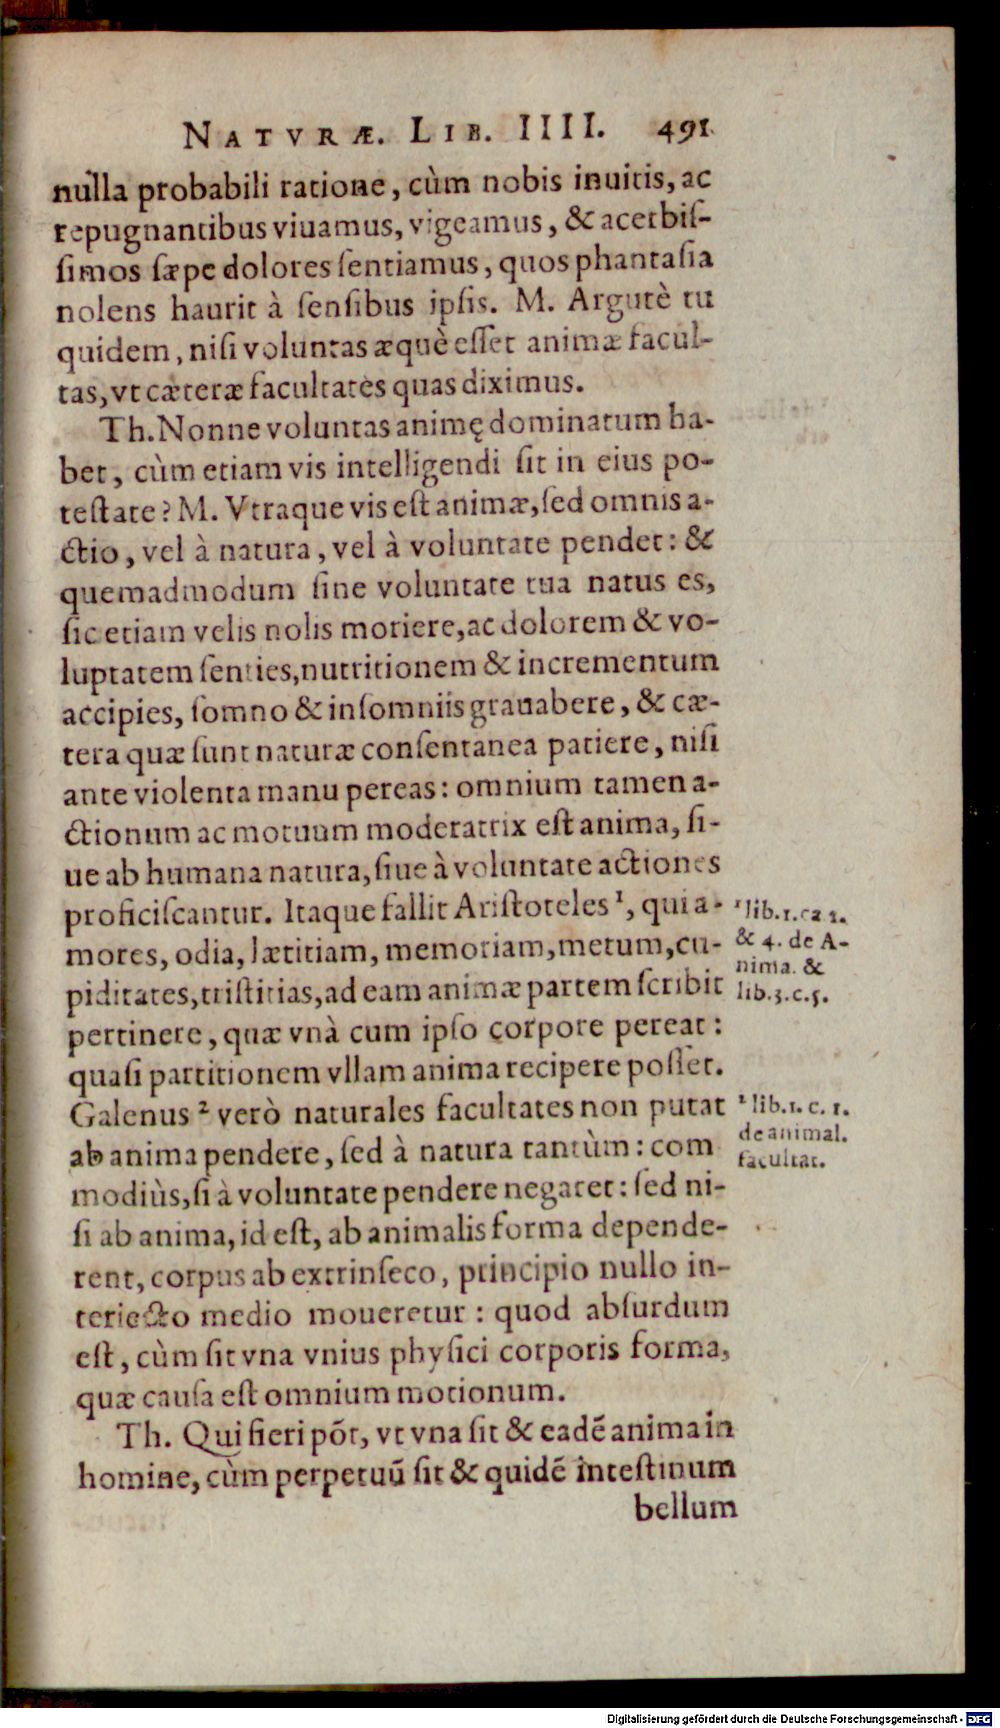 NATVRÆ. LIB. IIII. 491
nulla probabili ratione, cùm nobis inuitis, ac
repugnantibus viuamus, vigeamus, & acerbiſ-
ſimos ſæpe dolores ſentiamus, quos phantaſia
nolens haurit à ſenſibus ipſis. M. Argutè tu
quidem, niſi voluntas æquè eſſet animæ facul-
tas, vt cæteræ facultates quas diximus.
Th. Nonne voluntas animę dominatum ha-
bet, cùm etiam vis intelligendi ſit in eius po-
teſtate? M. Vtraque vis eſt animæ, ſed omnis a-
ctio, vel à natura, vel à voluntate pendet: &
quemadmodum ſine voluntate tua natus es,
ſic etiam velis nolis moriere, ac dolorem & vo-
luptatem ſenties, nutritionem & incrementum
accipies, ſomno & inſomniis grauabere, & cæ-
tera quæ ſunt naturæ conſentanea patiere, niſi
ante violenta manu pereas: omnium tamen a-
ctionum ac motuum moderatrix eſt anima, ſi-
ue ab humana natura, ſiue à voluntate actiones
proficiſcantur. Itaque fallit Ariſtoteles ¹, qui a-
mores, odia, lætitiam, memoriam, metum, cu-
piditates, triſtitias, ad eam animæ partem ſcribit
pertinere, quæ vnà cum ipſo corpore pereat:
quaſi partitionem vllam anima recipere poſſet.
Galenus ² verò naturales facultates non putat
ab anima pendere, ſed à natura tantùm: com
modiùs, ſi à voluntate pendere negaret: ſed ni-
ſi ab anima, id eſt, ab animalis forma depende-
rent, corpus ab extrinſeco, principio nullo in-
teriecto medio moueretur: quod abſurdum
eſt, cùm ſit vna vnius phyſici corporis forma,
quæ cauſa eſt omnium motionum.
Th. Qui fieri põt, vt vna ſit & eadē anima in
homine, cùm perpetuū ſit & quidē inteſtinum
bellum
¹ lib. 1. ca 1.
& 4. de A-
nima. &
lib. 3. c. 5.
² lib. 1. c. 1.
de animal.
facultat.
Digitalisierung gefördert durch die Deutsche Forschungsgemeinschaft - DFG